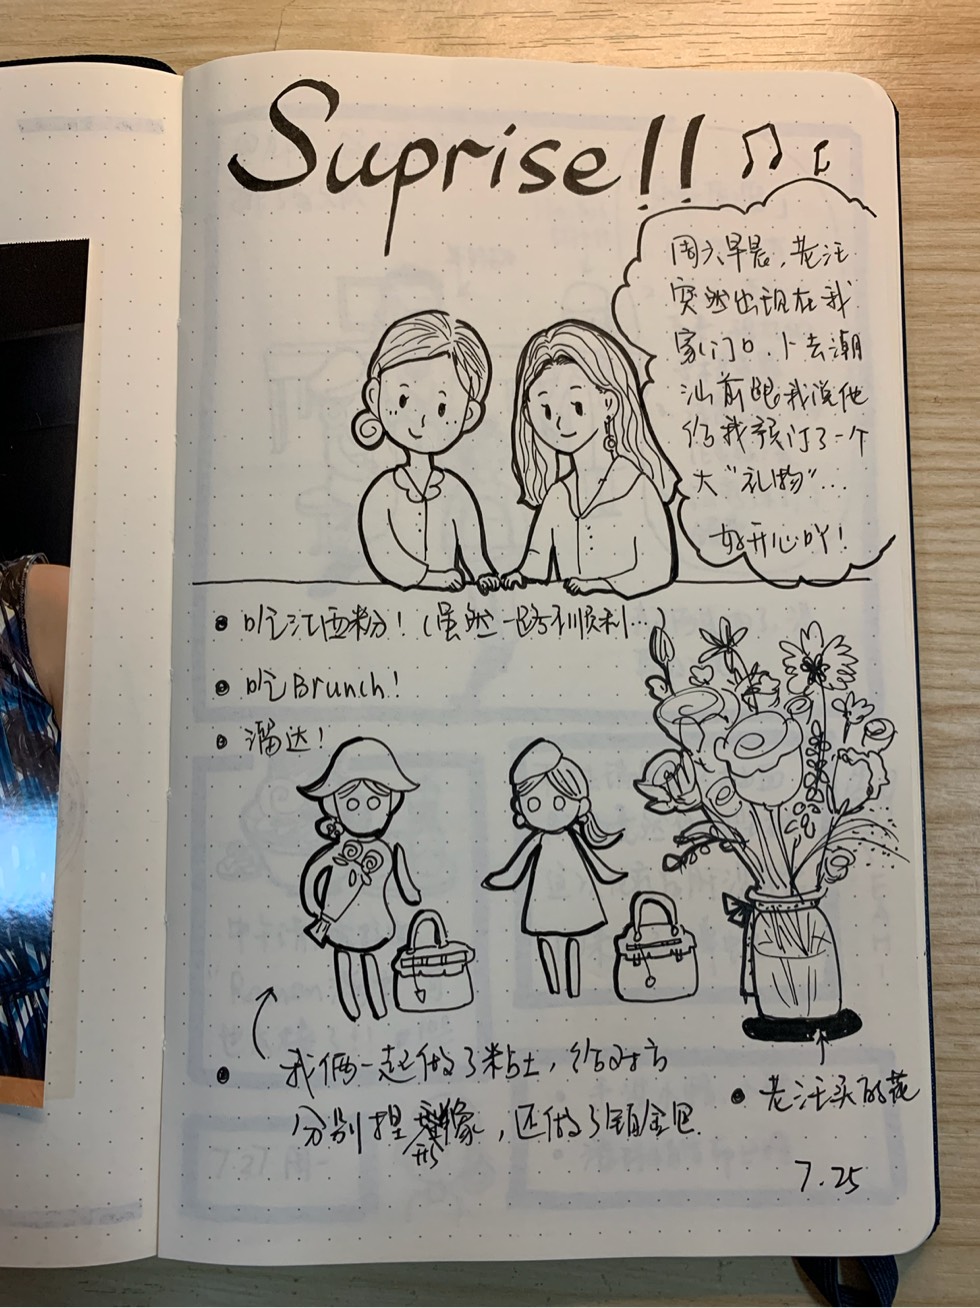 Suprise!!
周六早晨，老汪
突然出现在我
家门口，卜去潮
汕前跟我说他
给我预订了一个
大“礼物”...
好开心吖！
吃江西粉！（虽然一路不顺利...）
吃Brunch！
溜达！
我俩一起做了粘土，给对方
分别捏 形像，还做了铂金包
老汪买的花
7.25